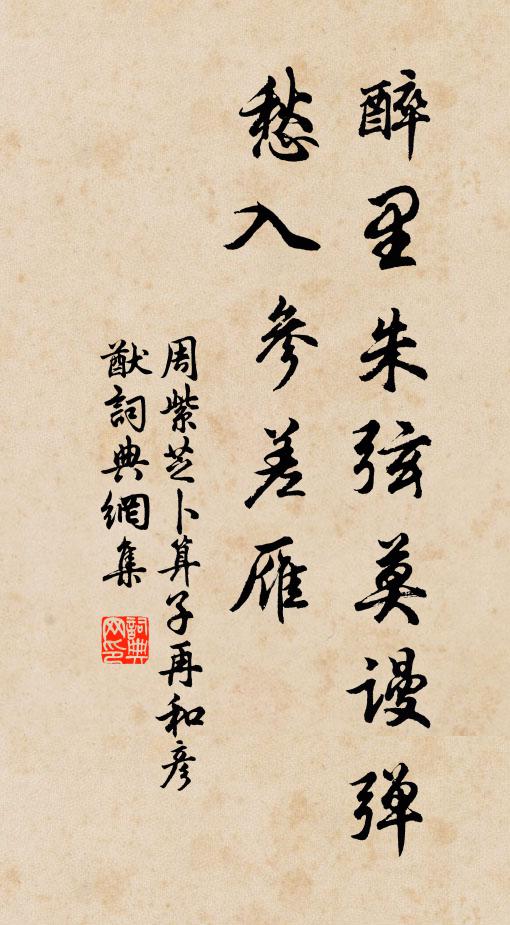 醉里朱弦莫谩弹
愁入参差雁
周紫芝卜算子再和彦
猷詞典網集
詞典网印